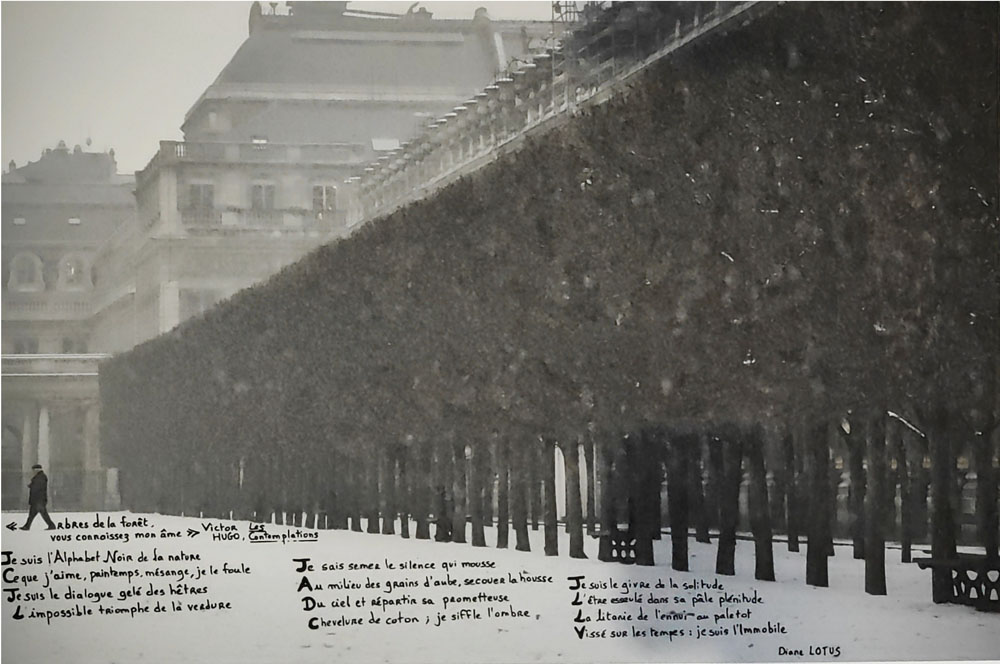 « Arbres de la forêt,
vous connoisses mon âme » Victor HUGO, Les Contemplations
Je suis l'Alphabet Noir de la nature
Ce que j'aime, printemps, mésange, je le foule
Je suis le dialogue gelé des hêtres
L'impossible triomphe de la verdure
Je sais semer le silence qui mousse
Au milieu des grains d'aube, secouer la housse
Du ciel et répartir sa prometteuse
Chevelure de coton ; je siffle l'ombre
Je suis le givre de la solitude
L'être esseulé dans sa pâle plénitude
La litanie de l'ennui au paletot
Vissé sur les tempes : je suis l'Immobile
Diane LOTUS